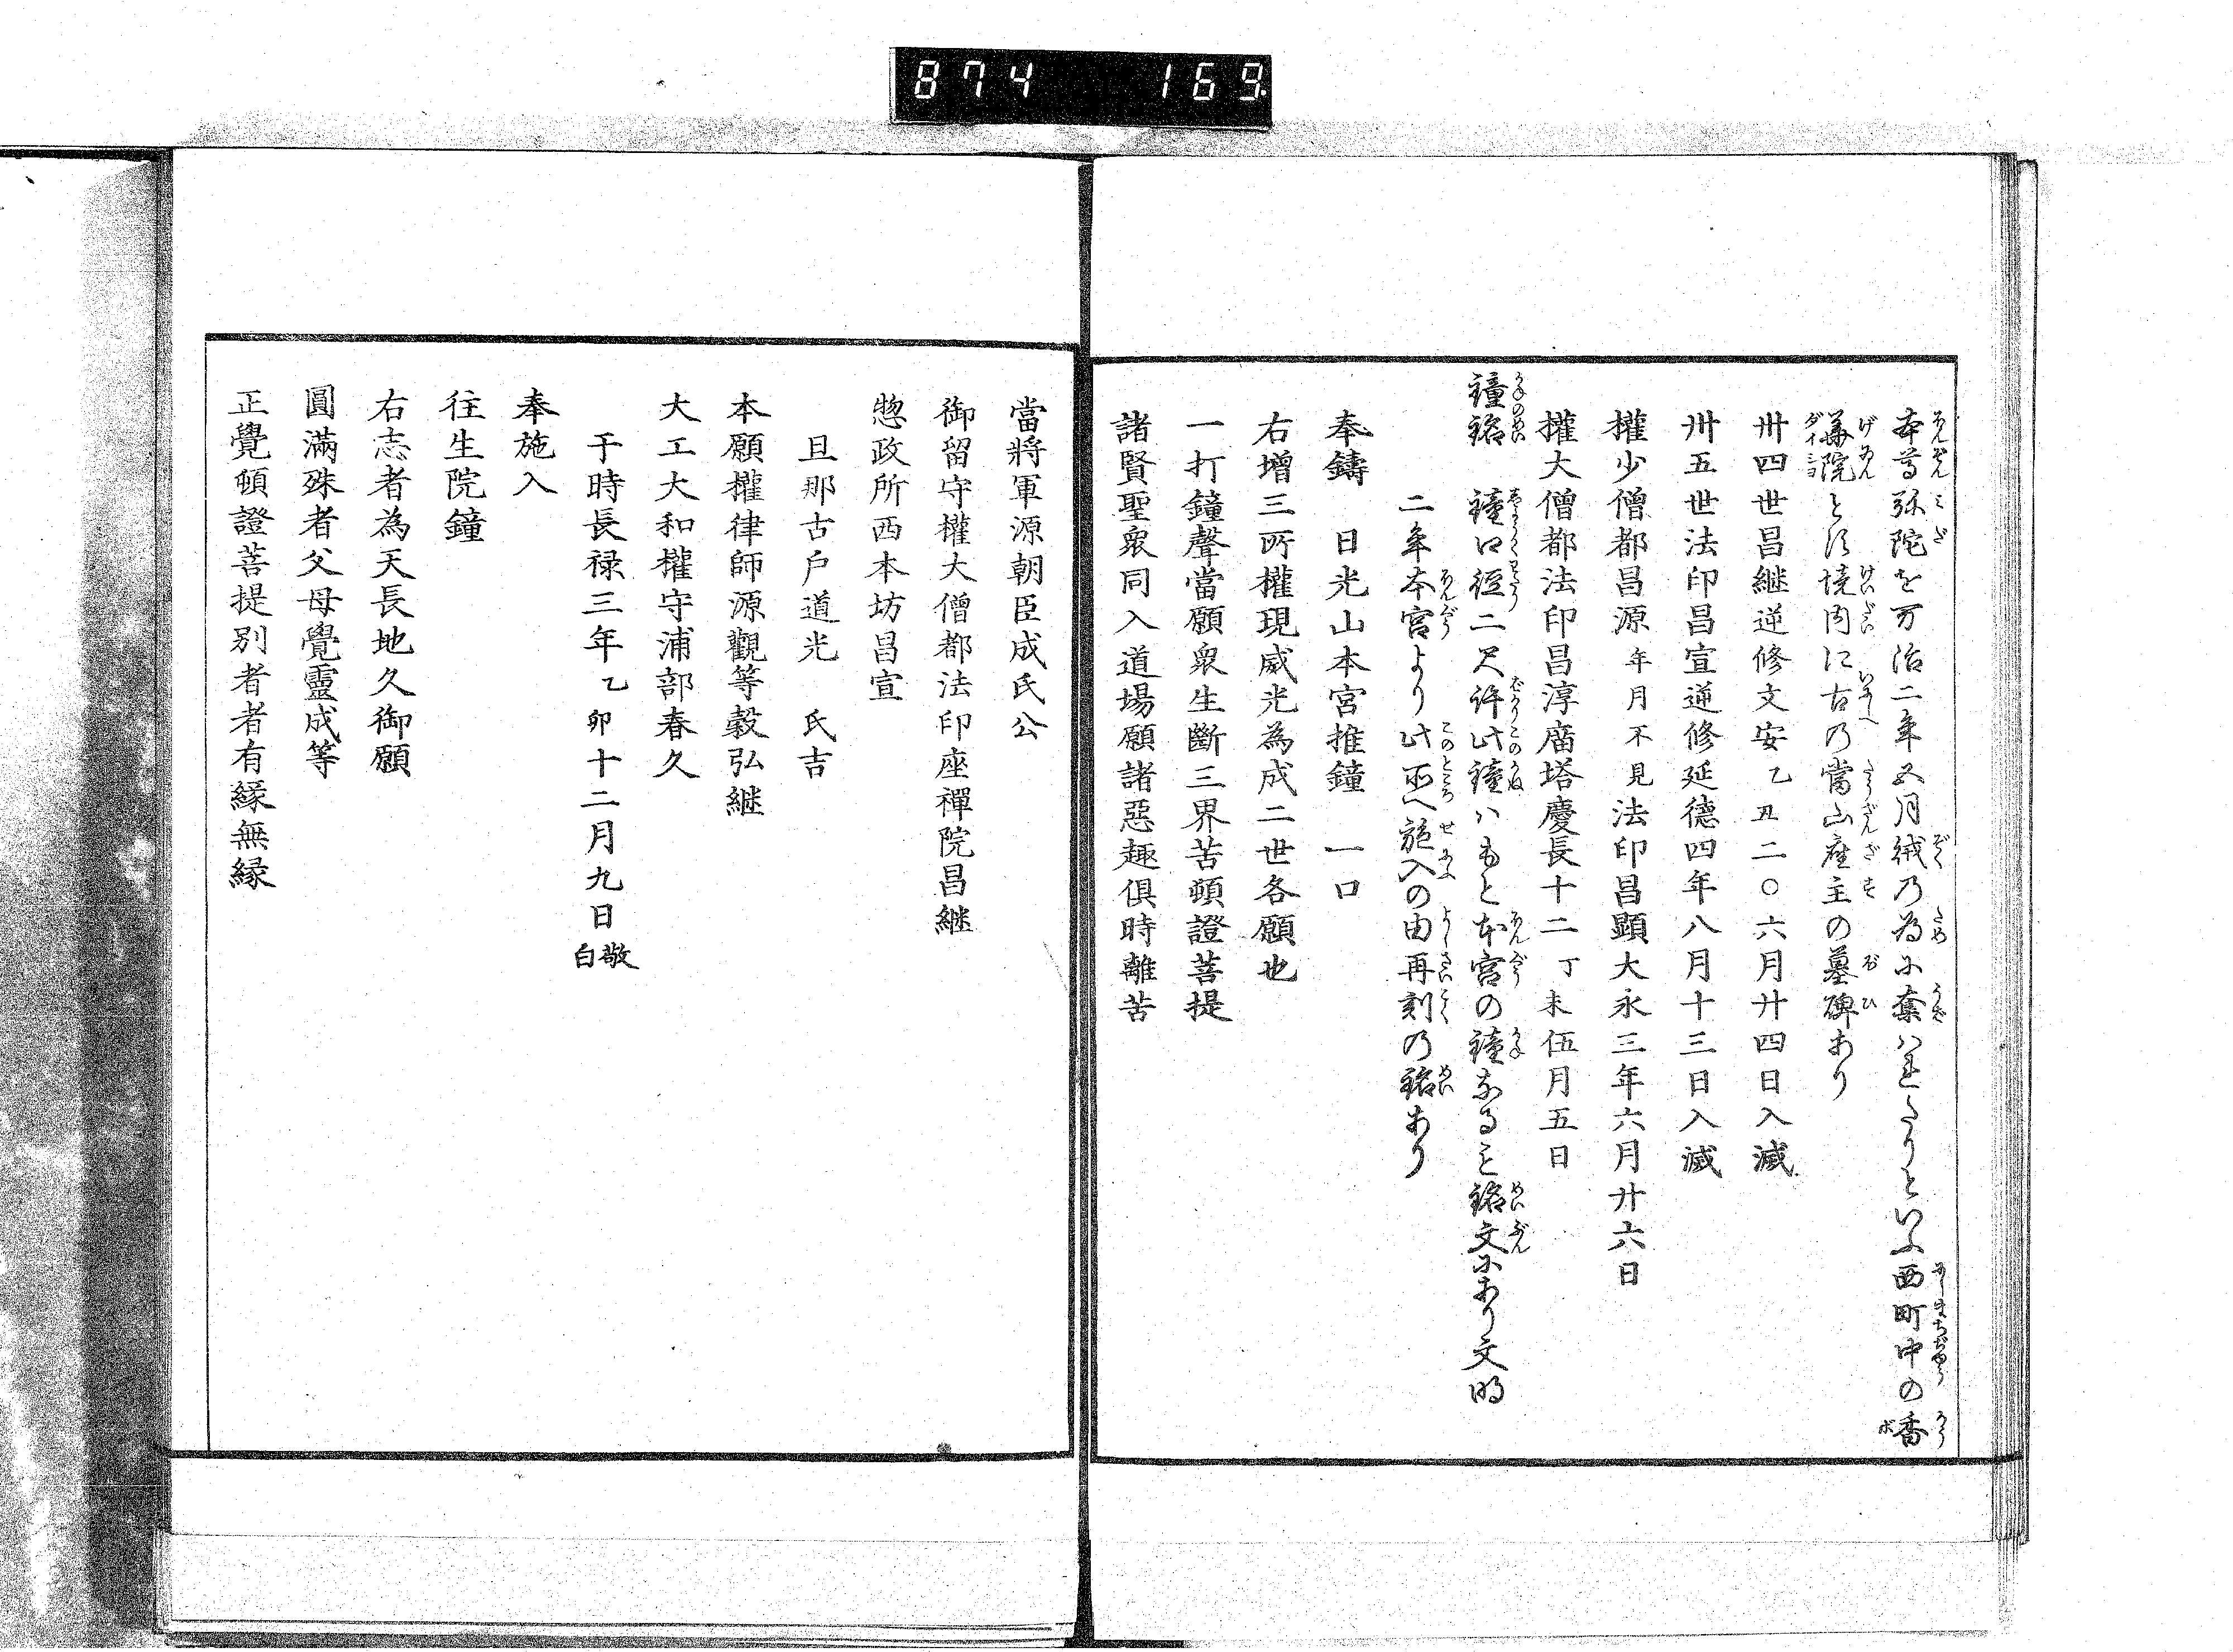 874 169
本尊弥陀を万治二年五月絨乃為に奪ハれたりといふ西町中の香
華院とす境内に古の當山座主の墓碑あり
卅四世昌継逆修文安乙丑二〇六月廿四日入滅
卅五世法印昌宣逆修延德四年八月十三日入滅
權少僧都昌源年月不見法印昌顕大永三年六月廿六日
權大僧都法印昌淳廟塔慶長十二丁未伍月五日
鐘銘 鐘口径二尺許此鐘ハもと本宮の鐘なるを銘文にあり文明
二年本宮より此所へ施入の由再刻の銘あり
奉鑄 日光山本宮推鐘 一口
右增三所權現威光為成二世各願也
一打鐘聲當願衆生斷三界苦頓證菩提
諸賢聖衆同入道場願諸惡趣俱時離苦
當將軍源朝臣成氏公
御留守權大僧都法印座禪院昌継
惣政所西本坊昌宣
旦那古戸道光 氏吉
本願權律師源觀等穀弘継
大工大和權守浦部春久
于時長禄三年乙卯十二月九日敬白
奉施入
往生院鐘
右志者為天長地久御願
圓滿殊者父母覺靈成等
正覺頓證菩提別者者有縁無縁